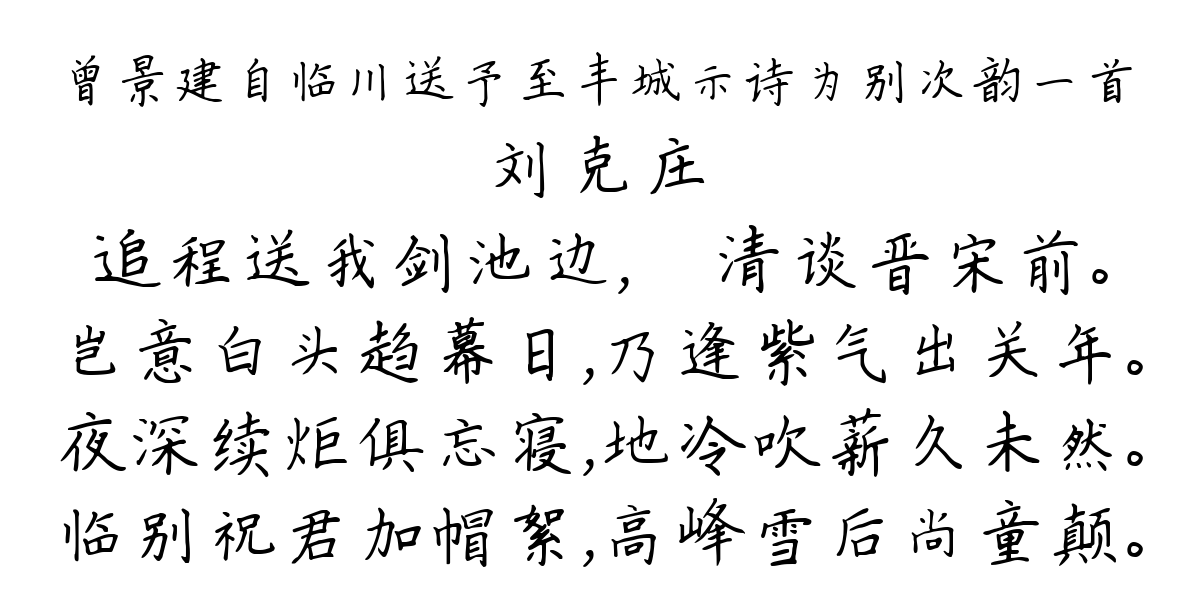 曾景建自临川送予至丰城示诗为别次韵一首
刘克庄
追程送我剑池边, 清谈晋宋前。
岂意白头趋幕日,乃逢紫气出关年。
夜深续炬俱忘寝,地冷吹薪久未然。
临别祝君加帽絮,高峰雪后尚童颠。